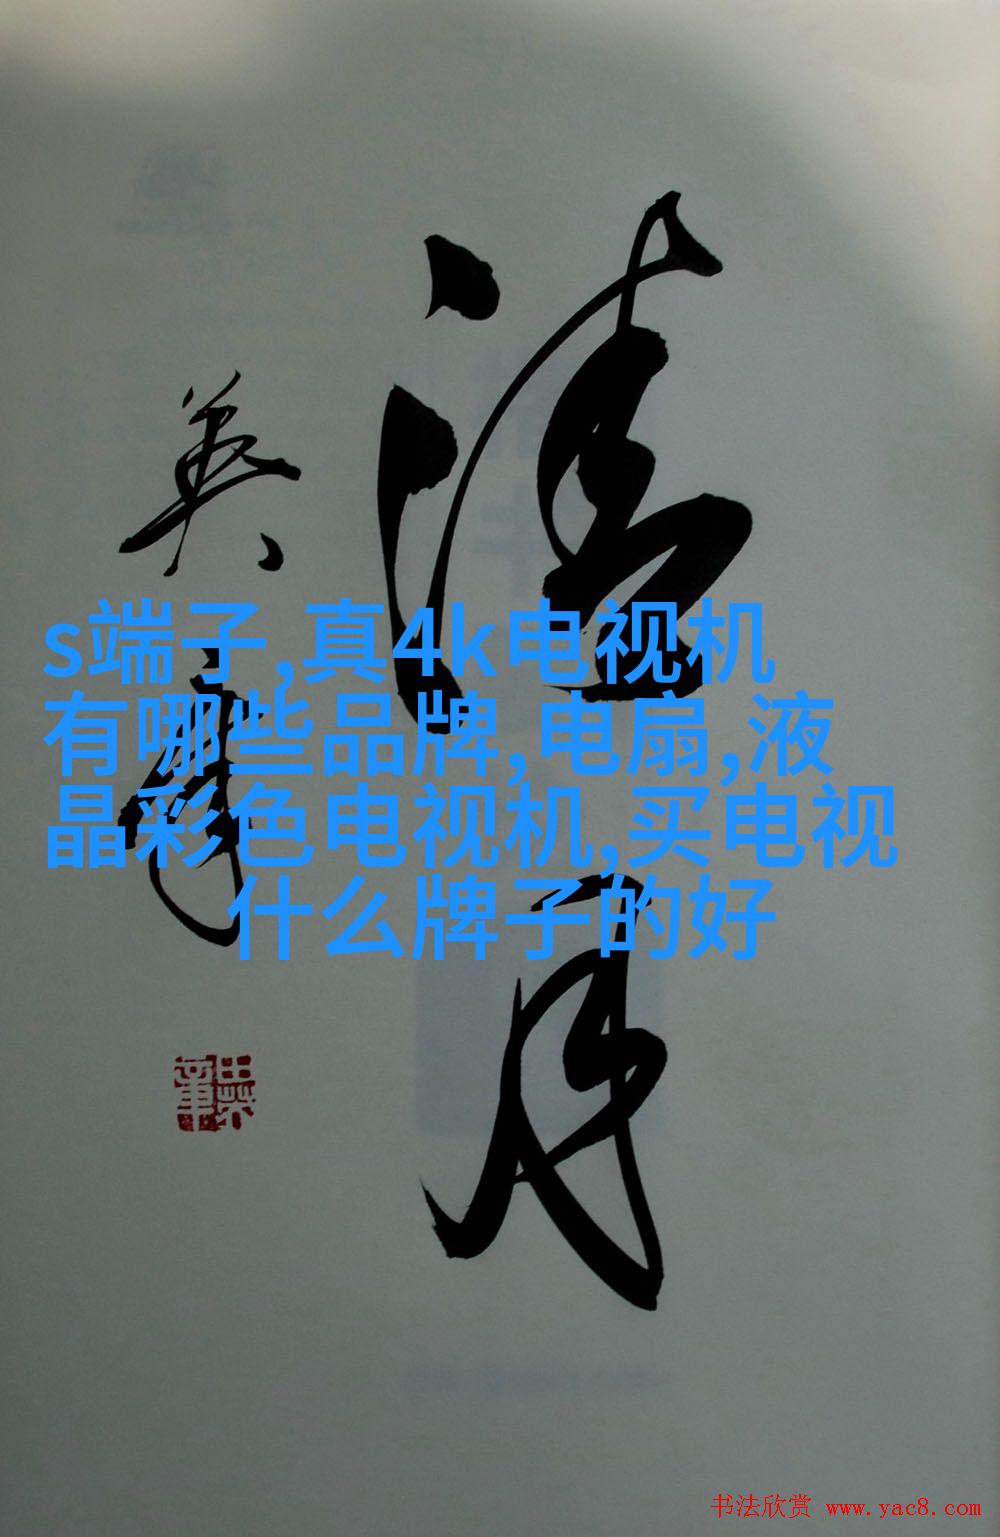 清月
英章
s端子,真4k电视机
有哪些品牌,电扇,液
晶彩色电视机,买电视
什么牌子的好
书法欣赏 www.yac8.com